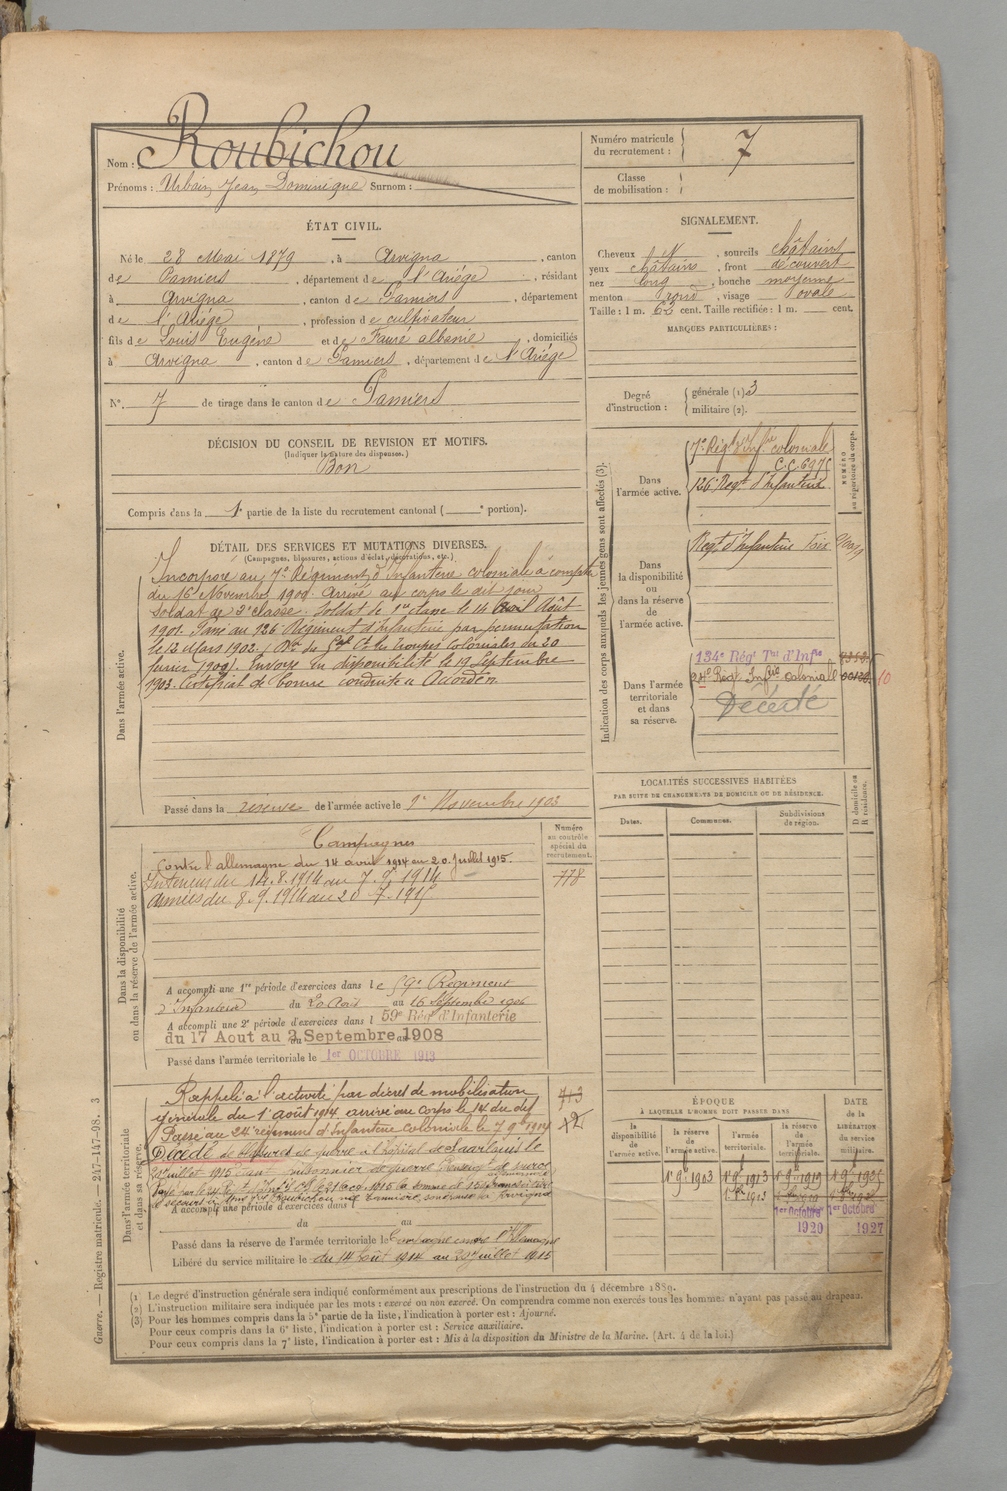 Nom : Roubichou
Prénoms : Urbain Jean Dominique Surnom :
Numéro matricule du recrutement : 7
Classe de mobilisation :
ÉTAT CIVIL.
Né le 28 Mai 1879, à Arvigna, canton
de Pamiers, département de l'Ariège, résidant
à Arvigna, canton de Pamiers, département
de l'Ariège, profession de cultivateur
fils de Louis Eugène et de Fauré albanie, domiciliés
à Arvigna, canton de Pamiers, département de l'Ariège
N°. 7 de tirage dans le canton de Pamiers
SIGNALEMENT.
Cheveux N, sourcils châtains
yeux châtains, front découvert
nez long, bouche moyenne
menton rond, visage ovale
Taille : 1 m. 62 cent. Taille rectifiée : 1 m. cent.
MARQUES PARTICULIÈRES :
Degré d'instruction : générale (1) 3
militaire (2).
DÉCISION DU CONSEIL DE REVISION ET MOTIFS.
(Indiquer la nature des dispenses.)
Bon
Compris dans la 1e partie de la liste du recrutement cantonal ( e portion).
DÉTAIL DES SERVICES ET MUTATIONS DIVERSES.
(Campagnes, blessures, actions d'éclat, décorations, etc.)
Dans l'armée active.
Incorporé au 7e Régiment d'Infanterie coloniale à compter
du 16 Novembre 1900. Arrivé au corps le dit jour
Soldat de 2e classe. Soldat de 1re classe le 14 Avril Août
1901. Passé au 126 Régiment d'Infanterie par permutation
le 12 Mars 1902.
février 1902). Envoyé en disponibilité le 19 Septembre
1903. Certificat de bonne conduite Accordé.
Passé dans la réserve de l'armée active le 1er Novembre 1903
Indication des corps auxquels les jeunes gens sont affectés (3).
NUMÉRO au répertoire du corps.
Dans l'armée active.
7e Régt d'Infie coloniale
C.C. 6975
126e Régt d'Infanterie
Dans la disponibilité ou dans la réserve de l'armée active.
Régt d'Infanterie Foix
Dans l'armée territoriale et dans sa réserve.
134e Régt Tal d'Infie
24e Régt Infie Colonial
Décédé
LOCALITÉS SUCCESSIVES HABITÉES
PAR SUITE DE CHANGEMENTS DE DOMICILE OU DE RÉSIDENCE.
Dates.
Communes.
Subdivisions de région.
D domicile ou R résidence.
Dans la disponibilité ou dans la réserve de l'armée active.
Campagnes
Contre l'allemagne du 14 août 1914 au 20 Juillet 1915.
Intérieur du 14.8.1914 au 7.9.1914
Armées du 8.9.1914 au 20.7.1915
Numéro au contrôle spécial du recrutement.
778
A accompli une 1re période d'exercices dans le 59e Régiment
d'Infanterie du 20 Août au 16 Septembre 1906
A accompli une 2e période d'exercices dans l 59e Régt d'Infanterie
du 17 Aout au 2 Septembre 1908
Passé dans l'armée territoriale le 1er OCTOBRE 1913
Dans l'armée territoriale et dans sa réserve.
Rappelé à l'activité par décret de mobilisation
générale du 1er août 1914 arrivé au corps le 14 du dit
Passé au 24e régiment d'Infanterie coloniale le 7 9bre 1914
Décédé de blessures de guerre à l'hôpital de Saarlouis le
20 juillet 1915 étant prisonnier de guerre
A accompli une période d'exercices dans l
du au
Passé dans la réserve de l'armée territoriale le Campagne contre l'Allemagne
Libéré du service militaire le du 14 août 1914 au 20 juillet 1915
713
ÉPOQUE
À LAQUELLE L'HOMME DOIT PASSER DANS
DATE de la LIBÉRATION du service militaire.
la disponibilité de l'armée active.
la réserve de l'armée active.
l'armée territoriale.
la réserve de l'armée territoriale.
1er 9bre 1903
1er 9bre 1913
1er 9bre 1919
1er Octobre 1920
1er Octobre 1927
(1) Le degré d'instruction générale sera indiqué conformément aux prescriptions de l'instruction du 4 décembre 1889.
(2) L'instruction militaire sera indiquée par les mots : exercé ou non exercé. On comprendra comme non exercés tous les hommes n'ayant pas passé au drapeau.
(3) Pour les hommes compris dans la 5e partie de la liste, l'indication à porter est : Ajourné.
Pour ceux compris dans la 6e liste, l'indication à porter est : Service auxiliaire.
Pour ceux compris dans la 7e liste, l'indication à porter est : Mis à la disposition du Ministre de la Marine. (Art. 4 de la loi.)
Guerre. — Registre matricule. 247-147-98. 3